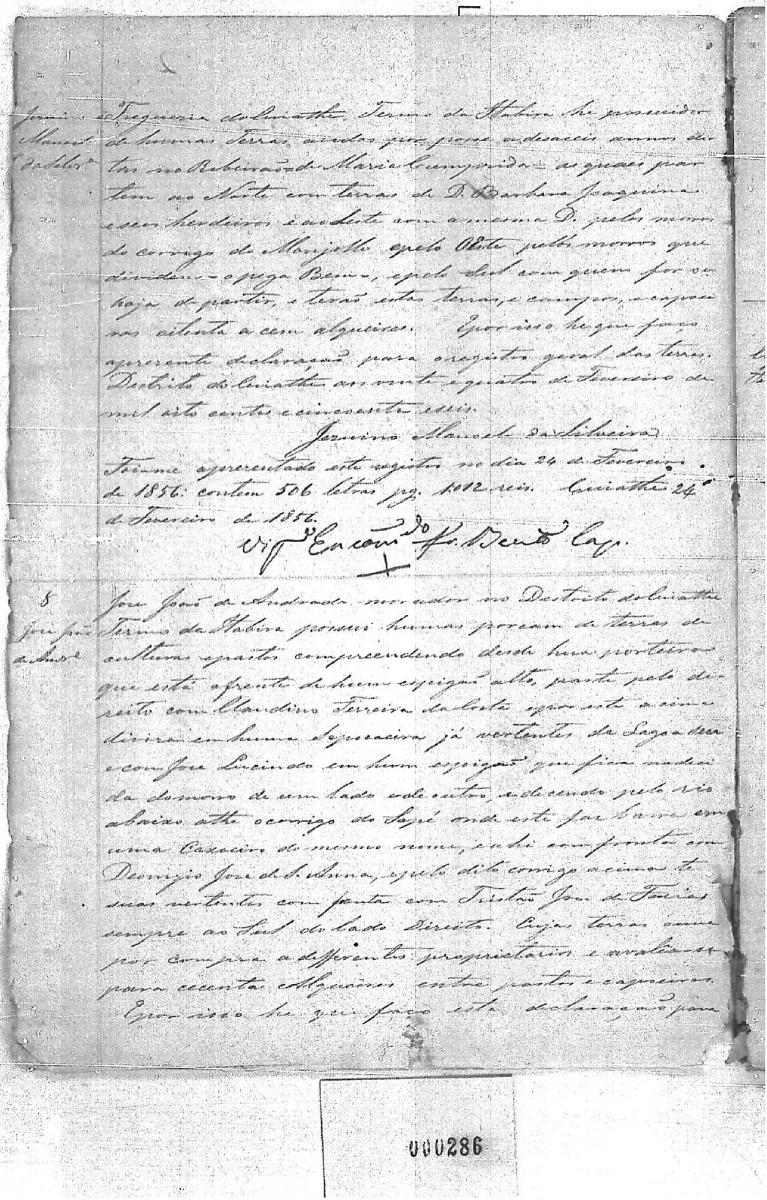 Freguezia do Cuiathe, Termo da Itabira he possuidor
de humas Terras, avidas por posse a desaceis annos de
tas no Ribeirão de Maria Cumprida - as quaes par
tem ao Norte com terras de D. Barbara Joaquina
e seus herdeiros e ao Leste com a mesma D. pelos morros
do corrigo do Monjollo e pelo Oéste pelos morros que
dividem - o pega Bem -, e pelo Sul com quem for ou
haja de partir, e terão estas terras, e campos, e capoei
ras oitenta a cem alqueires. E por isso he que faço
a prezente declaração para o registro geral das terras.
Destrito do Cuiathe aos vinte e quatro de Fevereiro de
mil oito centos e cincoenta e seis.
Manoel da Silveira
Foi-me aprezentado este registro no dia 24 de Fevereiro
de 1856: contem 506 letras pg. 1.012 reis. Cuiathe 24
de Fevereiro de 1856.
Vigr.º Encom.do Bento
8
Jose João de Andrade morador no Destrito do Cuiathe
Jose João
Termo da Itabira possui humas porcam de terras de
de Andr.e
culturas e pastos comprendendo desde hua porteira
que está a frente de hum espigão alto, parte pelo di
reito com Claudino Ferreira da Costa e por este a cima
divira em huma Sapucaeira já vertentes da Lagoa
e com Jose Lucindo em hum espigão que fica
da do morro de um lado e de outro, e decendo pelo rio
abaixo athe o corrigo do Sapé onde este faz barra em
uma Caxoeira do mesmo nome, e ahi com fronta com
Deonizio Jose de S. Anna, e pelo dito corrigo acima te
suas vertentes com fronta com Tristão Jose de
sempre ao Sul do lado Direito. Cujas terras ouve
por compra a differentes proprietarios e
para cecenta Alqueires entre pastos e capoeiras.
E por isso he que faço esta declaração para
000286